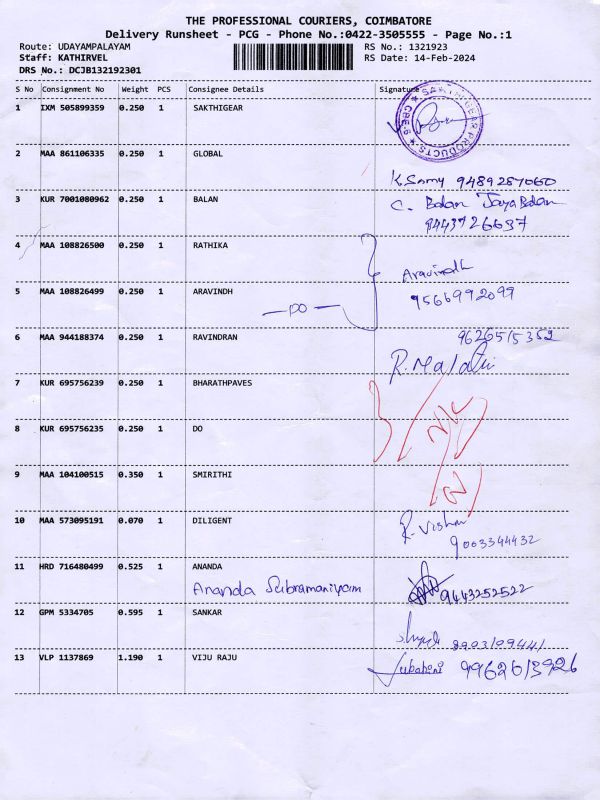 THE PROFESSIONAL COURIERS, COIMBATORE
Delivery Runsheet - PCG - Phone No.:0422-3505555 - Page No.:1
Route: UDAYAMPALAYAM RS No.: 1321923
Staff: KATHIRVEL RS Date: 14-Feb-2024
DRS No.: DCJB132192301
S No Consignment No Weight PCS Consignee Details Signature
SAKTHI GEAR PRODUCTS ★ CBE-5 ★
1 IXM 505899359 0.250 1 SAKTHIGEAR
2 MAA 861106335 0.250 1 GLOBAL
K.Samy 9489287060
3 KUR 7001080962 0.250 1 BALAN C. Balan JayaBalan
9443726637
4 MAA 108826500 0.250 1 RATHIKA
Aravindh
5 MAA 108826499 0.250 1 ARAVINDH 9566992099
— DO —
6 MAA 944188374 0.250 1 RAVINDRAN 9626515352
R. Malathi
7 KUR 695756239 0.250 1 BHARATHPAVES
8 KUR 695756235 0.250 1 DO
9 MAA 104100515 0.350 1 SMIRITHI
10 MAA 573095191 0.070 1 DILIGENT R. Vishnu
9003344432
11 HRD 716480499 0.525 1 ANANDA
Ananda Subramaniyam 9443252522
12 GPM 5334705 0.595 1 SANKAR
8903109441
13 VLP 1137869 1.190 1 VIJU RAJU Subahini 9962013926